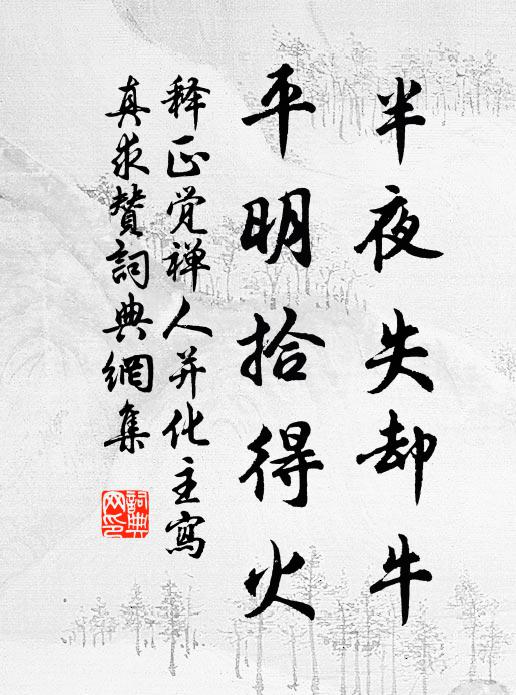 半夜失却牛
平明拾得火
释正觉禅人并化主寫
真求贊詞典網集
詞典网印